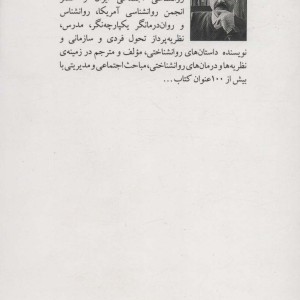 انجمن روانشناسی آمریکا، روانشناس
و روان‌درمانگر یکپارچه‌نگر، مدرس،
نظریه‌پرداز تحول فردی و سازمانی و
نویسنده داستان‌های روانشناختی، مؤلف و مترجم در زمینه‌ی
نظریه‌ها و درمان‌های روانشناختی، مباحث اجتماعی و مدیریتی با
بیش از ۱۰۰عنوان کتاب...